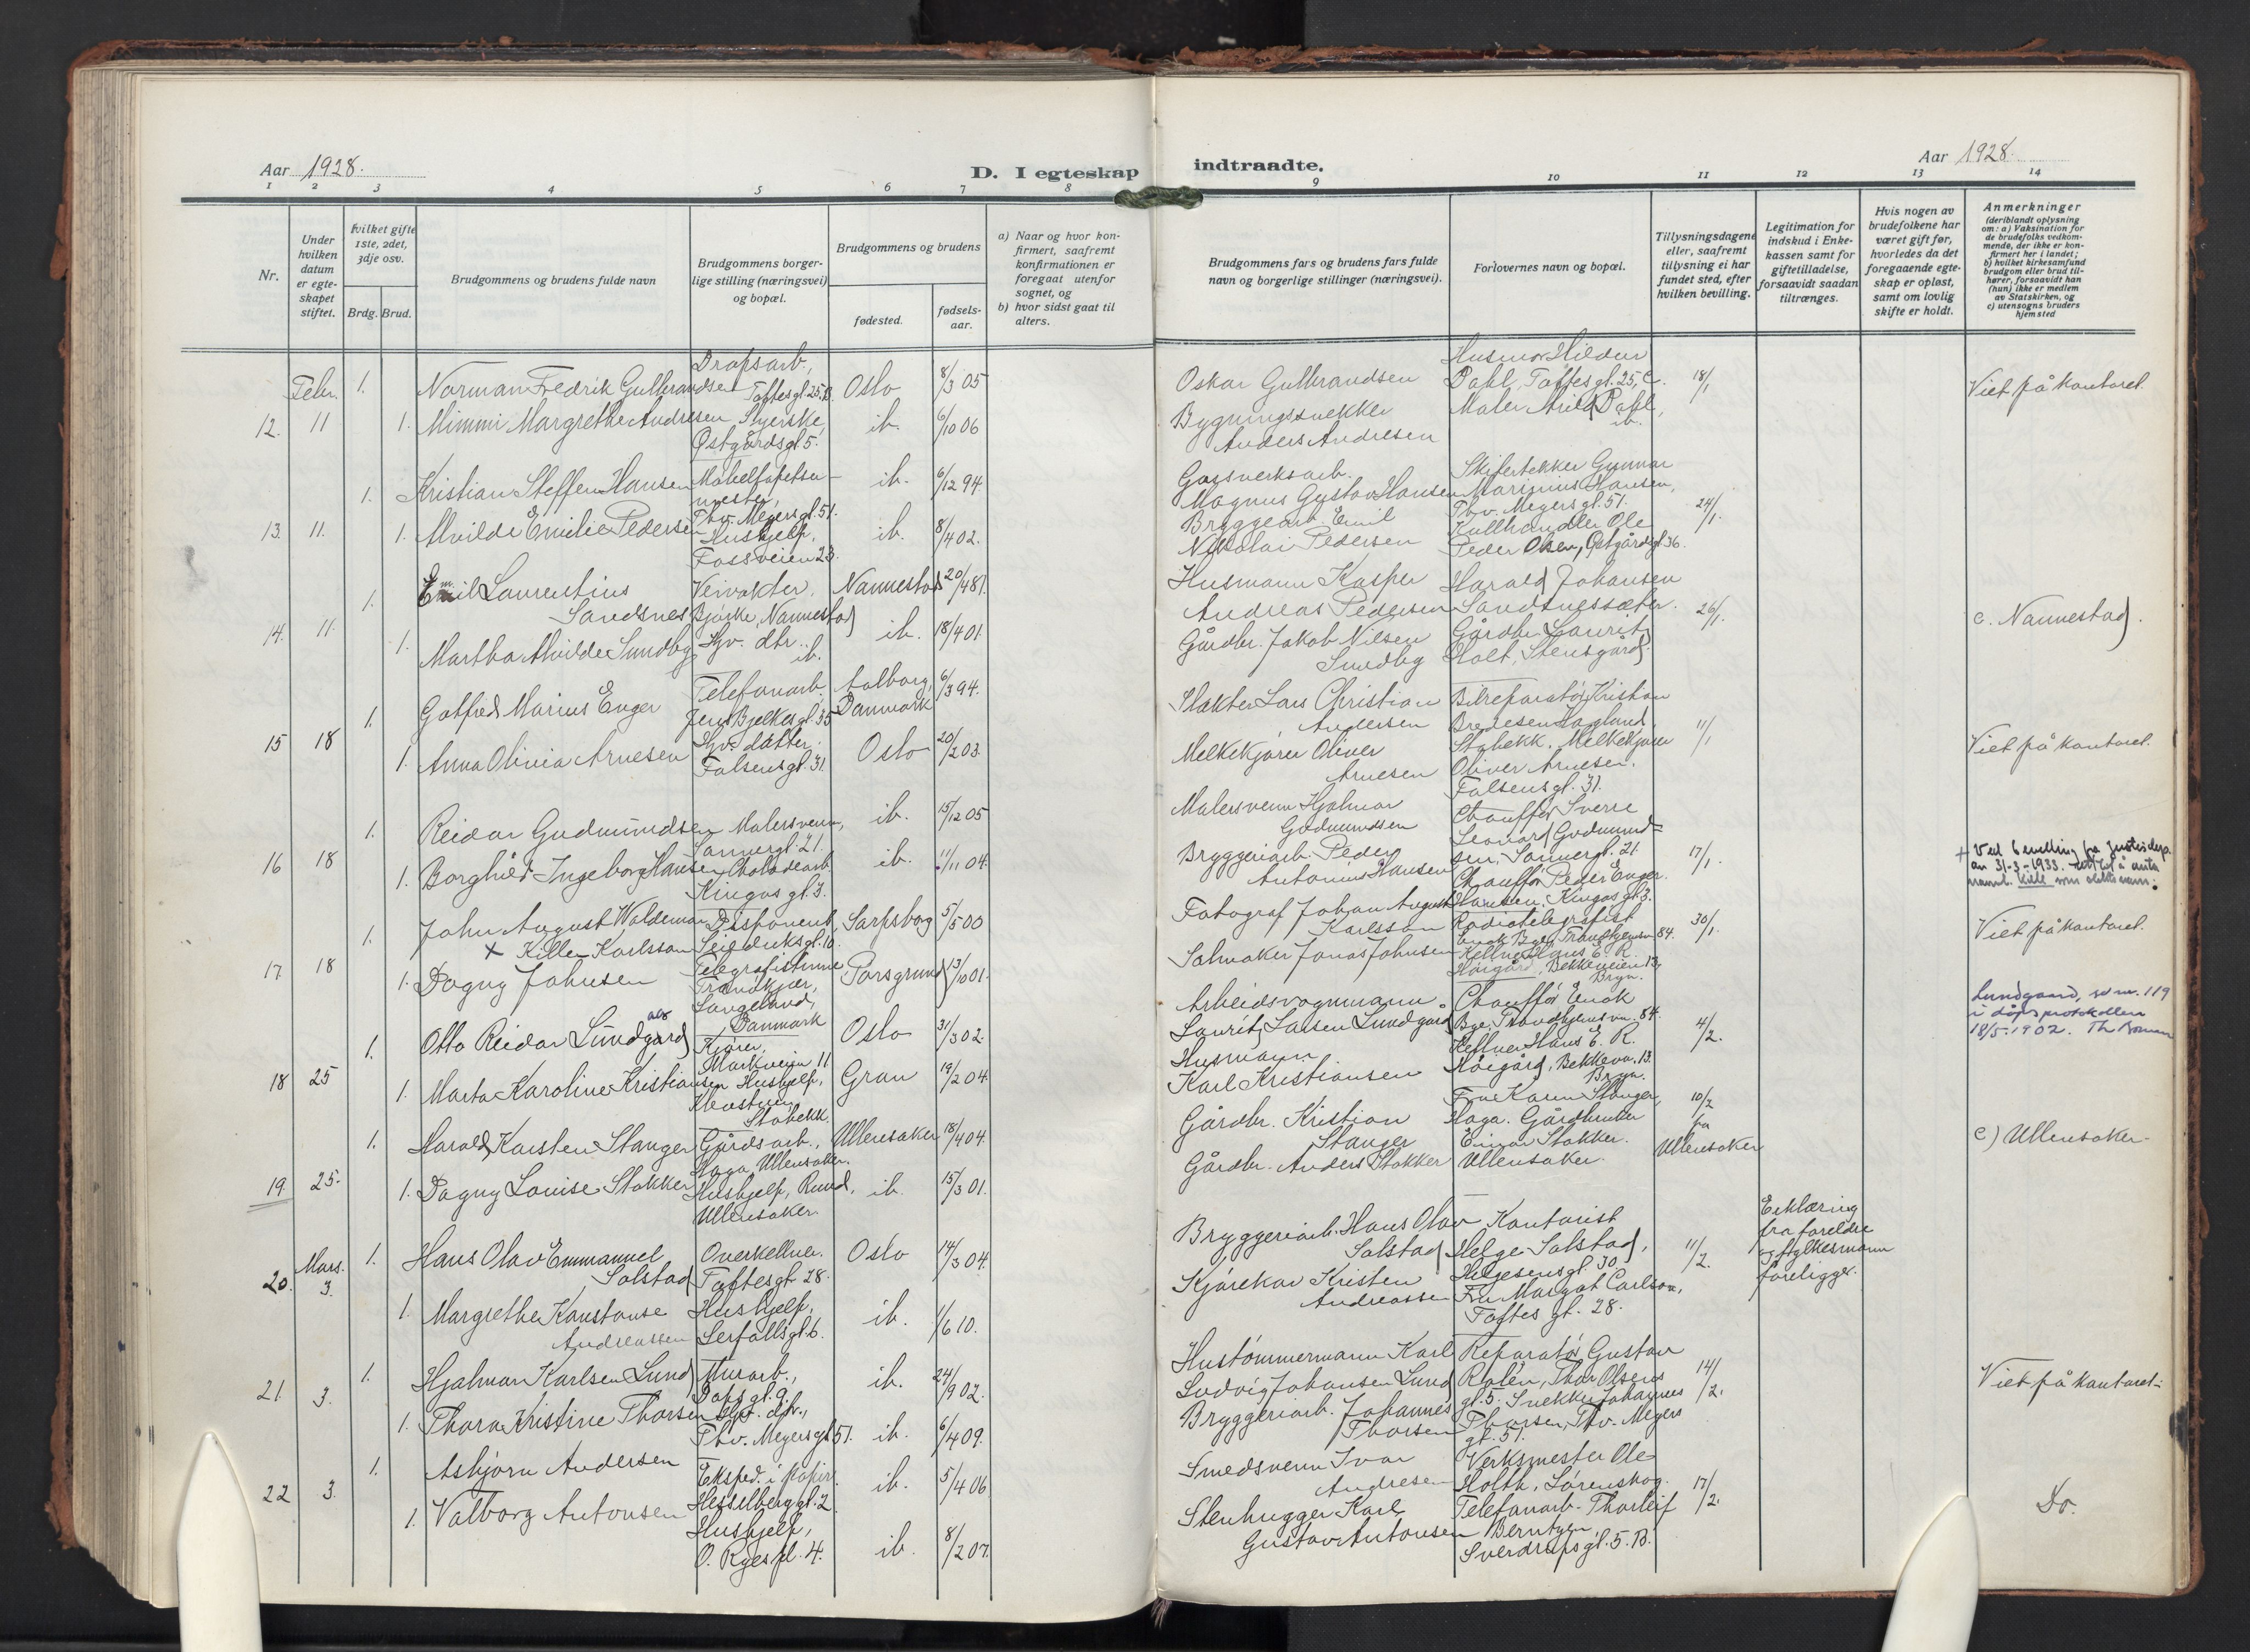 Aar 1928.
D. I egteskap
indtraadte.
Aar 1928.
1 2 3 4 5 6 7 8
9 10 11 12 13 14
Nr.
Under hvilken datum er egteskapet stiftet.
Hvilket gifte 1ste, 2det, 3dje osv.
Brdg. Brud.
Brudgommens og brudens fulde navn
Brudgommens borgerlige stilling (næringsvei) og bopæl.
Brudgommens og brudens
fødested.
fødselsaar.
a) Naar og hvor konfirmert, saafremt konfirmationen er foregaat utenfor sognet, og
b) hvor sidst gaat til alters.
Brudgommens fars og brudens fars fulde navn og borgerlige stillinger (næringsvei).
Forlovernes navn og bopæl.
Tillysningsdagene eller, saafremt tillysning ei har fundet sted, efter hvilken bevilling.
Legitimation for indskud i Enkekassen samt for giftetilladelse, forsaavidt saadan tiltrænges.
Hvis nogen av brudefolkene har været gift før, hvorledes da det foregaaende egteskap er opløst, samt om lovlig skifte er holdt.
Anmerkninger
(deriblandt oplysning om: a) Vaksination for de brudefolks vedkommende, der ikke er konfirmert her i landet; b) hvilket kirkesamfund brudgom eller brud tilhører, forsaavidt han (hun) ikke er medlem av Statskirken, og c) utensogns bruders hjemsted
Febr. 1. Norman Fredrik Gulbrandsen Dropsarb., Toftesgt. 25, B. Oslo 8/3 05
12. 11 1. Mimmi Margrethe Andresen Syerske, Østgårdsgt 5. ib. 6/10 06
Oskar Gulbrandsen
Bygningssnekker Anders Andresen
Husmor Hildur Dahl, Toftesgt. 25, C.
Maler Arild Dahl, ib.
18/1
Viet på kontoret.
1. Kristian Steffen Hansen Møbeltapetsermester, Thv. Meyersgt. 51. ib. 6/12 94.
13. 11. 1. Alvilde Emilie Pedersen Hushjelp, Fossveien 23. ib. 8/4 02.
Gassverksarb. Magnus Gustav Hansen
Bryggearb. Emil Nikolai Pedersen
Skifertekker Gunnar Marinius Hansen, Thv. Meyersgt. 51.
Kullhandler Ole Peder Olsen, Østgårdsgt. 36.
24/1.
1. Emil Laurentius Sandsnes Veivokter, Bjørke, Nannestad Nannestad 20/4 81.
14. 11. 1. Martha Alvilde Smedbg Hjv. dtr. ib. ib. 18/4 01.
Husmann Kasper Andreas Pedersen
Gårdbr. Jakob Nilsen Smedbg
Harald Johansen Sandsnessæter.
Gårdbr. Laurits Holt, Stensgård.
26/1.
c. Nannestad.
1. Gotfred Marius Enger Telefonarb. Jens Bjelkesgt. 35 Aalborg, Danmark 6/3 94.
15 18 1. Anna Olivia Arnesen Hjv. datter. Falsensgt. 31. Oslo 20/2 03.
Slakter Lars Christian Andersen
Melkekjører Oliver Arnesen
Bilreparatør Kristian Bredesen Hagland, Stabekk.
Melkekjører Oliver Arnesen. Falsensgt. 31.
11/1
Viet på kontoret.
1. Reidar Gudmundsen Malersvenn, Sannergt. 21. ib. 15/12 05
16 18 1. Borghild Ingeborg Hansen Chokoladearb. Kingosgt. 3. ib. 11/11 04.
Malersvenn Hjalmar Gudmundsen
Bryggeriarb. Peder Antonius Hansen
Chauffør Sverre Leonard Gudmundsen, Sannergt. 21.
Chauffør Peder Enger Hansen, Kingosgt. 3.
17/1.
1. John August Waldemar x Killer Karlsson Disponent, Seilduksgt. 10. Sarpsborg 5/5 00
17. 18 1. Dagny Johnsen Telegrafistinne, Tranekjær, Langeland, Danmark Porsgrund 13/10 01.
Fotograf Johan August Karlsson
Salmaker Jonas Johnsen
Radiotelegrafist Enok Bge, Trondhjemsvn. 84.
Kellner Hans E. R. Høigård, Bekkeveien 13, Bryn.
30/1.
+ Ved bevilling fra Justisdep. av 31-3-1933
Viet på kontoret.
1. Otto Reidar Lundgard Kjører, Markveien 11 Oslo 31/3 02.
18 25 1. Marta Karoline Kristiansen Hushjelp, Stabekk. Gran 19/2 04.
Arbeidsvognmann Laurits Larsen Lundgård
Husmann Karl Kristiansen
Chauffør Enok Bge. Trondhjemsvn. 84.
Kellner Hans E. R. Høigård, Bekkevn. 13. Bryn.
4/2.
Lundgaard, se nr. 119 i dåpsprotokollen 18/5-1902.
1. Harald Karsten Stanger Gårdsarb., Haga, Ullensaker. Ullensaker 18/4 04.
19. 25. 1. Dagny Louise Stokker Hushjelp, Rund, Ullensaker. ib. 15/3 01.
Gårdbr. Kristian Stanger
Gårdbr. Anders Stokker
Fru Karen Stanger, Haga.
Gårdbruker Einar Stokker. Ullensaker.
10/2 fra Ullensaker
c) Ullensaker.
Mars. 1. Hans Olav Emmanuel Solstad Overkellner. Toftesgt. 28. Oslo 14/3 04.
20. 3. 1. Margrethe Konstanse Andreassen Hushjelp, Leirfallsgt. 6. ib. 1/6 10.
Bryggeriarb. Hans Olav Solstad
Kjørekar Kristen Andreassen
Kontorist Helge Solstad, Helgesensgt. 30.
Fru Margot Carlson, Toftes gt. 28.
11/2.
Erklæring fra foreldre og fylkesmann foreligger.
1. Hjalmar Karlsen Lund Murarb., Dopsgt. 9. ib. 24/9 02.
21. 3. 1. Thora Kristine Thorsen Hjv. dtr., Thv. Meyersgt 51. ib. 6/4 09.
Hustømmermann Karl Ludvig Johansen Lund
Bryggeriarb. Johannes Thorsen
Reparatør Gustav Rolén, Thor Olsens gt. 5.
Snekker Johannes Thorsen, Thv. Meyers gt. 51.
14/2.
Viet på kontoret.
1. Asbjørn Andersen Eksped. i papir. Hesselberggt. 2. ib. 5/4 06
22 3. 1. Valborg Antonsen Hushjelp, O. Ryes pl. 4. ib. 8/2 07.
Smedsvenn Ivar Andresen
Stenhugger Karl Gustav Antonsen
Verksmester Ole Holth, Lørenskog.
Telefonarb. Thorleif Berntzen Sverdrupsgt. 5. B.
17/2.
Do.